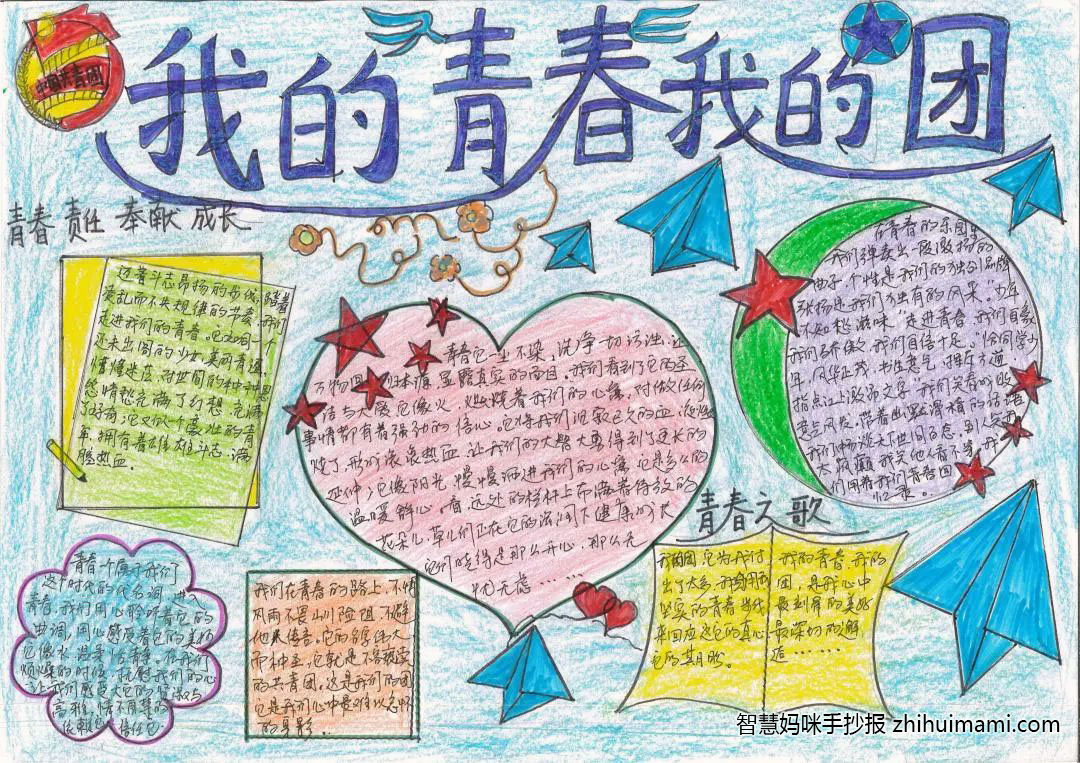 我的青春我的团
青春 责任 奉献 成长
迈着斗志昂扬的步伐,踏着
凌乱而不失规律的节奏,我们
走进我们的青春。它如同一个
还未出阁的少女,美丽青涩
情愫迷茫,对世间的种种思
悠情愁充满了幻想,充满
了好奇;它又似个魔性的青
年,拥有着雄雄斗志,满
腔热血。
青春它一尘不染,洗净一切污浊,让
万物回归
显露真实的面目,我们看到了它的圣
洁与大度它像火,燃烧着我们的心扉,对做任何
事情都有着强劲的信心。它将我们沉寂已久的血,沸
烧了,激
滚滚热血,让我们的大臂大勇得到了更长的
延伸;它像阳光,慢慢洒进我们的心扉,它是多么的
温暖舒心,看,远处的枝杆上布满着待放的
花朵儿,草儿们正在它的滋润下健康成长
它们
得是那么开心,那么无
忧无虑……
在青春的乐园里
我们弹奏出一段激扬的
曲子,个性是我们的独创品牌
张扬是我们独有的风采。"少年
不知愁滋味"走进青春,我们自豪
我们骄傲,我们自信十足。"恰同学少
年,风华正茂,书生意气,挥斥方遒,
指点江山激昂文字"我们笑看成败
意气风发,带着幽默滑稽的话语
我们畅谈天世间百态,别人
太疯癫,我笑他人看不穿,我
们用着我们青春
回忆录。
青春之歌
青春一个属于我们
这个时代的代名词,进
青春,我们用心聆听着它的
曲调,用心感受着它的美好
它像水,温柔恬静,在我们
烦燥的时候,抚慰我们的心
让我们感受大它的
与
高雅,情不自禁的
依赖它,信任它。
我们在青春的路上,不惧
风雨不畏山川险阻,不避
他人传言。它的
伟大
而神圣,它就是不容亵渎
的共青团。这是我们的团
它是我们心中最难以忘怀
的身影。
我的团,它为我们付
出了太多,我们用
坚实的青春当代
来回应这它的真心
它的其月盼。
我的青春,我的
团,是我心中
最到有的美好
最深切的解
造……
智慧妈咪手抄报 zhihuimami.com